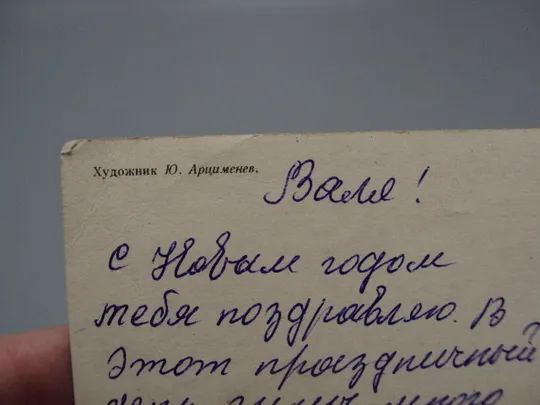 Художник Ю. Арцименев.
Валя!
С Новым годом
тебя поздравляю. В
этот праздничный
день много